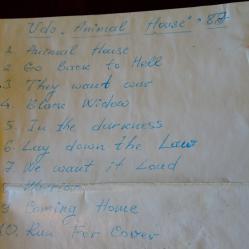 Udo „Animal House" - 87
1. Animal House
2 Go Back to Hell
3 They want war
4. Black Widow
5. In the darkness
6. Lay down the Law
7. We want it Loud
Warrior
9 Coming Home
10. Run For Cover